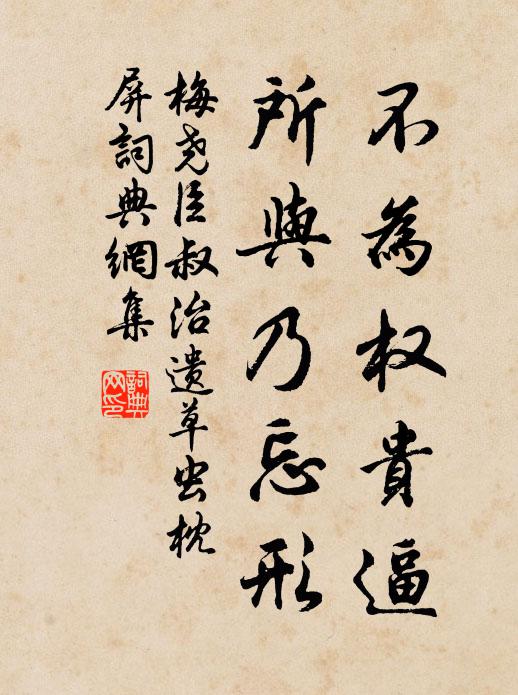 不為权貴逼
所與乃忘形
梅尧臣叔治遗草虫枕
屏詞典網集
詞典
网印